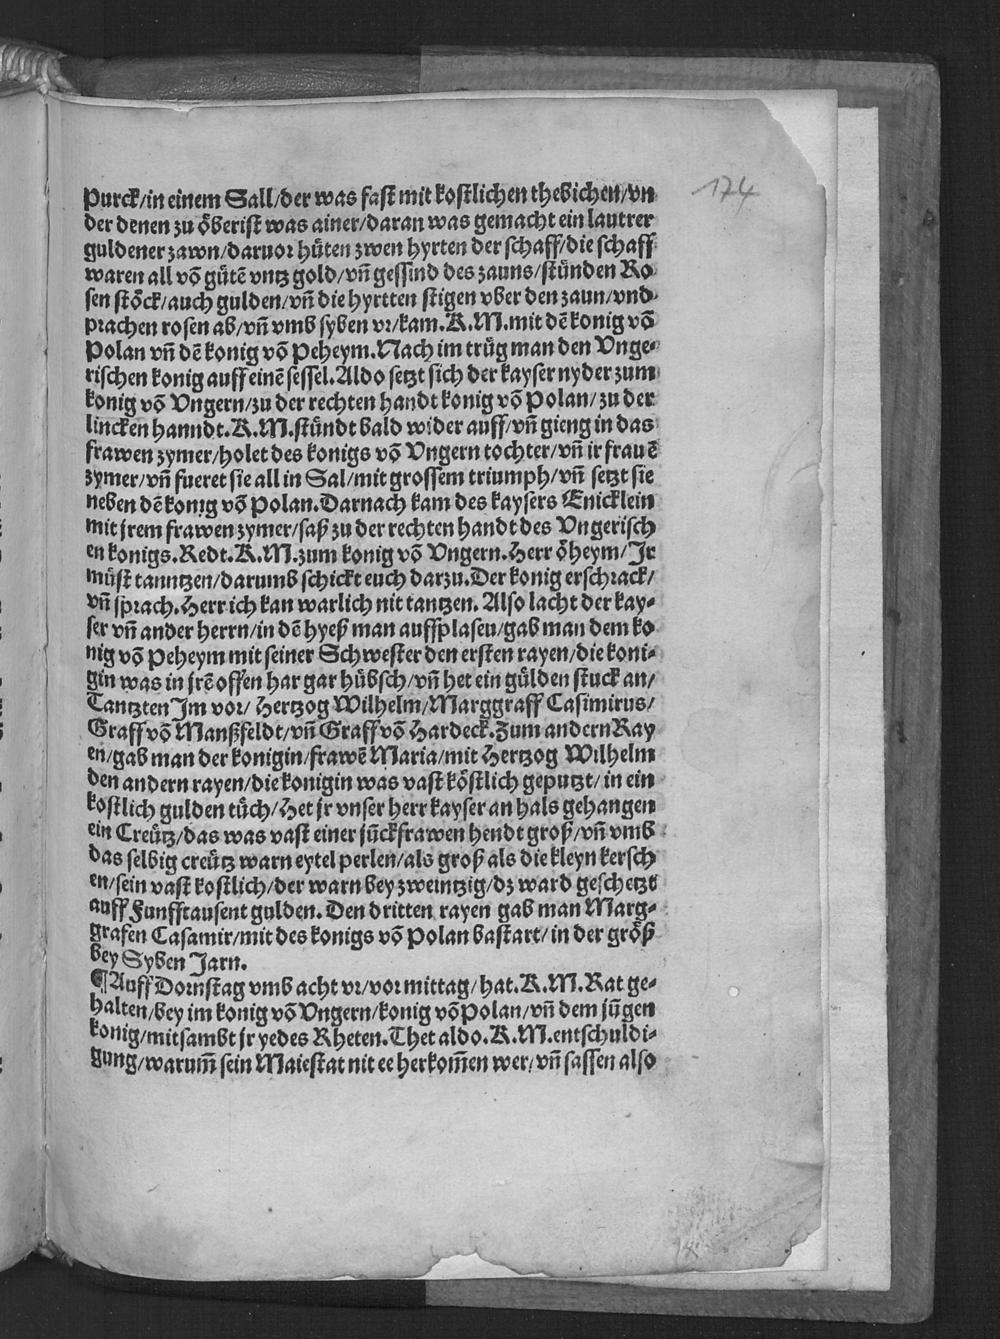 174
Purck/in einem Sall/der was fast mit kostlichen thebichen/vn
der denen zu öberist was ainer/daran was gemacht ein lautrer
guldener zawn/daruor hüten zwen hyrten der schaff/die schaff
waren all võ gütẽ vntz gold/vñ gessind des zauns/stünden Ro-
sen stöck/auch gulden/vñ die hyrtten stigen vber den zaun/vnd
prachen rosen ab/vñ vmb syben vr/kam. K. M. mit dẽ konig võ
Polan vñ dẽ konig võ Peheym. Nach im trüg man den Vnge-
rischen konig auff einẽ sessel. Aldo setzt sich der kayser nyder zum
konig võ Vngern/zu der rechten handt konig võ Polan/zu der
lincken hanndt. K. M. stündt bald wider auff/vñ gieng in das
frawen zymer/holet des konigs võ Vngern tochter/vñ ir frauẽ
zymer/vñ fueret sie all in Sal/mit grossem triumph/vñ setzt sie
neben dẽ konig võ Polan. Darnach kam des kaysers Enicklein
mit jrem frawen zymer/saß zu der rechten handt des Vngerisch
en konigs. Redt. K. M. zum konig võ Vngern. Herr öheym/Jr
müst tanntzen/darumb schickt euch darzu. Der konig erschrack/
vñ sprach. Herr ich kan warlich nit tantzen. Also lacht der kay-
ser vñ ander herrn/in dẽ hyeß man auffplasen/gab man dem ko
nig võ Peheym mit seiner Schwester den ersten rayen/die koni-
gin was in jrẽ offen har gar hübsch/vñ het ein gülden stuck an/
Tantzten Jm vor/ Hertzog Wilhelm/Marggraff Casimirus/
Graff võ Manßfeldt/vñ Graff võ Hardeck. Zum andern Ray
en/gab man der konigin/frawẽ Maria/mit Hertzog Wilhelm
den andern rayen/die konigin was vast köstlich geputzt/in ein
kostlich gulden tüch/Het jr vnser herr kayser an hals gehangen
ein Creütz/das was vast einer jũckfrawen hendt groß/vñ vmb
das selbig creütz warn eytel perlen/als groß als die kleyn kersch
en/sein vast kostlich/der warn bey zweintzig/dz ward geschetzt
auff Funfftausent gulden. Den dritten rayen gab man Marg-
grafen Casamir/mit des konigs võ Polan bastart/in der größ
bey Syben Jarn.
¶Auff Dornstag vmb acht vr/vor mittag/hat. K. M. Rat ge-
halten/bey im konig võ Vngern/konig võ Polan/vñ dem jũgen
konig/mitsambt jr yedes Rheten. Thet aldo. K. M. entschuldi-
gung/warum̃ sein Maiestat nit ee herkom̃en wer/vñ sassen also